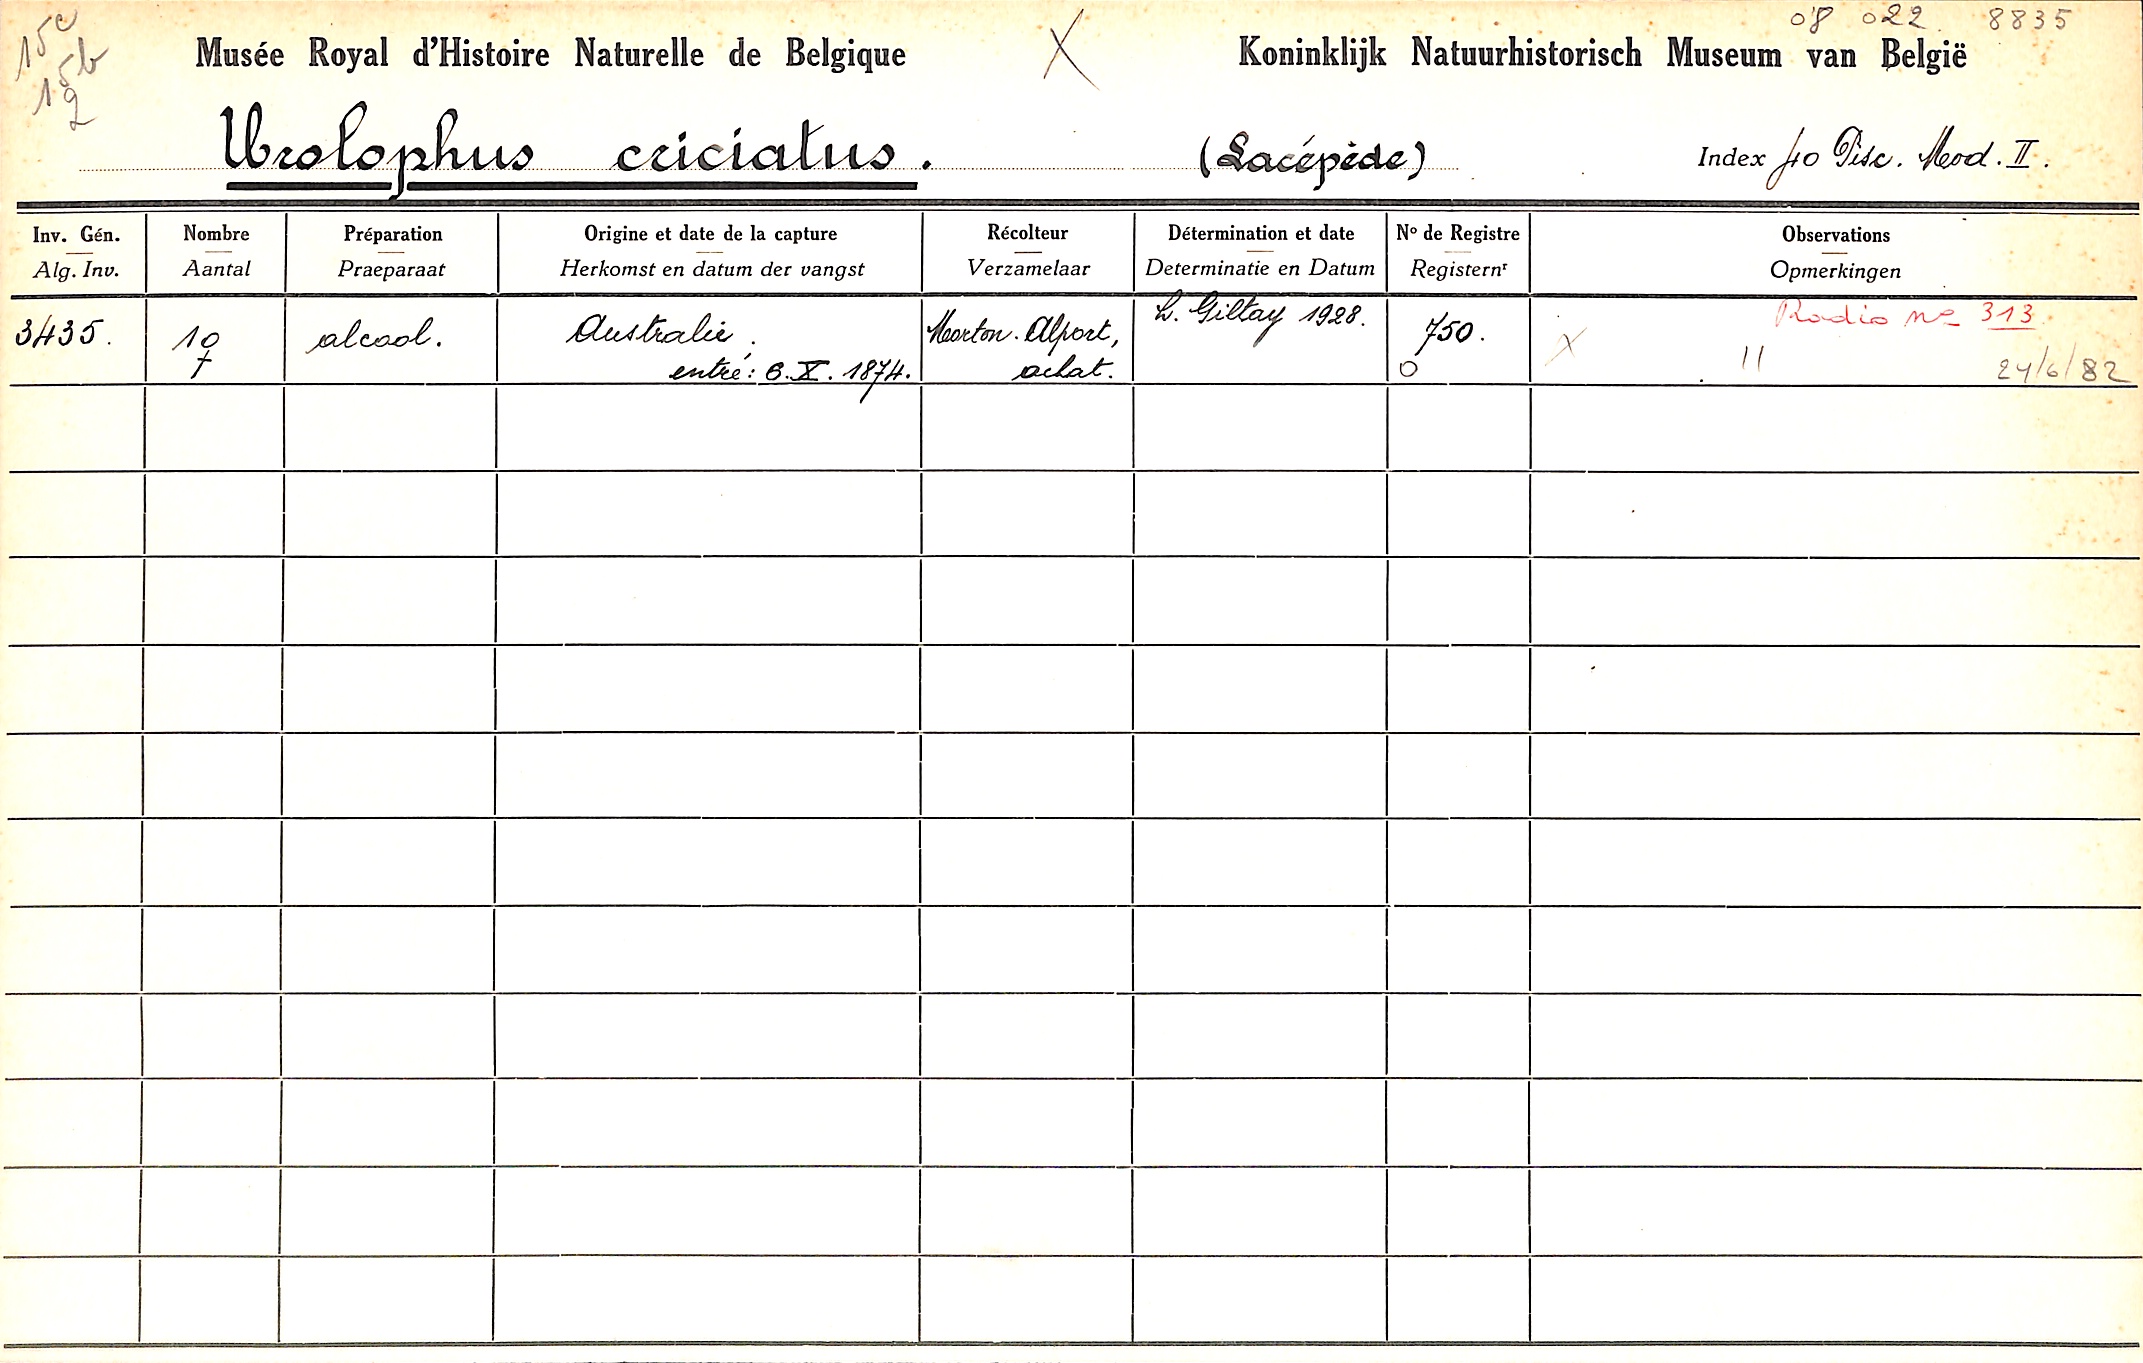 15c
15b
2
X
08 022 8835
Musée Royal d'Histoire Naturelle de Belgique
Koninklijk Natuurhistorisch Museum van België
Urolophus criciatus. (Lacépède) Index 40 Pisc. Mod. II.
Inv. Gén. Nombre Préparation Origine et date de la capture Récolteur Détermination et date Nº de Registre Observations
Alg. Inv. Aantal Praeparaat Herkomst en datum der vangst Verzamelaar Determinatie en Datum Registernʳ Opmerkingen
3435. 1♀ alcool. Australie. Morton. Alport, L. Giltay 1928. 750. Radio nº 313
entré: 6.X.1874. achat. O X 11 24/6/82